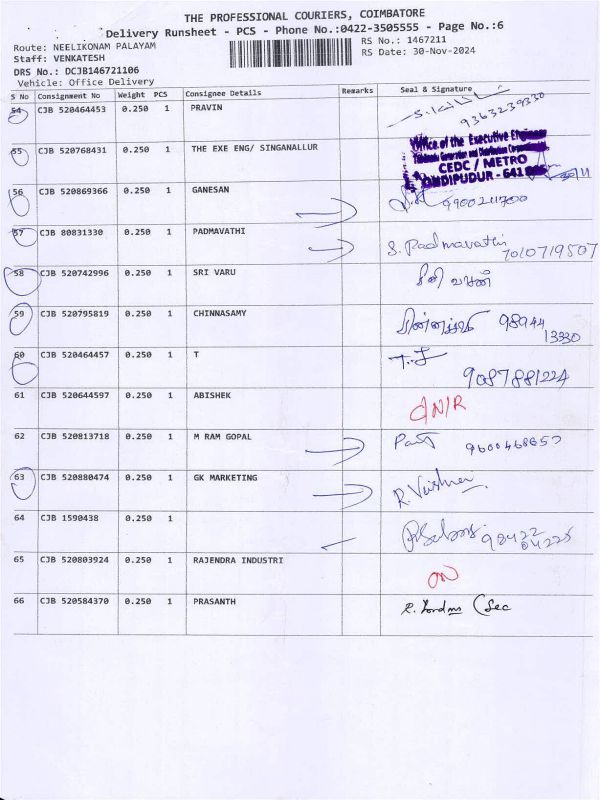 THE PROFESSIONAL COURIERS, COIMBATORE
Delivery Runsheet - PCS - Phone No.:0422-3505555 - Page No.:6
Route: NEELIKONAM PALAYAM
RS No.: 1467211
Staff: VENKATESH
RS Date: 30-Nov-2024
DRS No.: DCJB146721106
Vehicle: Office Delivery
S No Consignment No Weight PCS Consignee Details Remarks Seal & Signature
54 CJB 520464453 0.250 1 PRAVIN
9363239330
55 CJB 520768431 0.250 1 THE EXE ENG/ SINGANALLUR
Office of the Executive Engineer
CEDC / METRO
ONDIPUDUR - 641
56 CJB 520869366 0.250 1 GANESAN
57 CJB 80831330 0.250 1 PADMAVATHI S. Padmavathi
7010719507
58 CJB 520742996 0.250 1 SRI VARU
59 CJB 520795819 0.250 1 CHINNASAMY 98944
13330
60 CJB 520464457 0.250 1 T
9087881224
61 CJB 520644597 0.250 1 ABISHEK
62 CJB 520813718 0.250 1 M RAM GOPAL
63 CJB 520880474 0.250 1 GK MARKETING
64 CJB 1590438 0.250 1
65 CJB 520803924 0.250 1 RAJENDRA INDUSTRI
66 CJB 520584370 0.250 1 PRASANTH